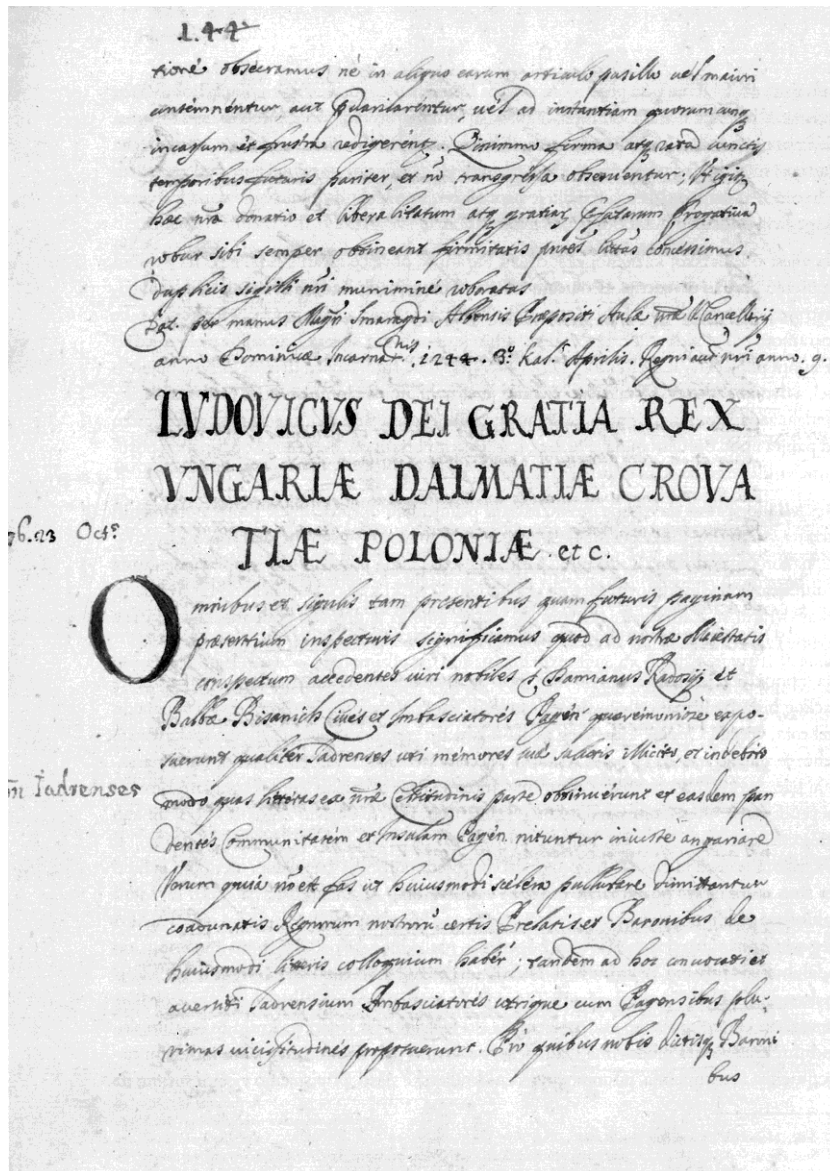 1.44
tioné obsecramus né in aliquo earum articulo pusillo uél maiori
contemnéntur, aut uél ad instantiam quorumcunq
incassum ét frustra redigerént. Quinimmo firma atq rata cunctis
temporibus futuris pariter, et nō transgressa obseruentur; Vt igit
haec nrã donatio et libertatum atq gratiar, Prorogatiua
robur sibi semper obtineant firmitatis pntés littãs concessimus
duplicis sigilli nrĩ muniminé roboratas
Dat. per manus Magrĩ Smaragdi Albensis Præpositi Aulæ nrã Cancellarij
anno Dominicæ Incarnat.nis 1244. 3.º kal. Aprilis. Regni aut nrĩ anno. 9.
LVDOVICVS DEI GRATIA REX
VNGARIÆ DALMATIÆ CROVA
TIÆ POLONIÆ etc.
76.23 Oct.s
Omnibus et sigulis tam presentibus quam futuris paginam
præsentium inspecturis significamus quod ad nostræ Maiestatis
conspectum accedentes uiri nobiles Damianus Radosij ét
Balbæ Bisanich Ciués et Imbasciatorés Pagén quæremonione expo-
suerunt qualiter Jadrenses uti mémores suæ salutis illicito, et indebito
Jadrenses
modo quas litteras ex nrã Celsitudinis parte obtinuérunt et easdem pan
dentés Communitatém et Insulam Pagén. nituntur iniusté angariaré
Verum quia nō est fas ut huiusmodi scélera pullulare dimittantur
coadunatis Regnorum nostrorũ certis Prelatis et Baronibus de
huiusmodi litteris colloquium habér; tandem ad hoc conuocati et
auertiti Jadrensium Imbasciatorés utrique cum Pagensibus plu-
rimas uicissitudinés proposuerunt. Pro quibus nobis dictisq Baroni
bus